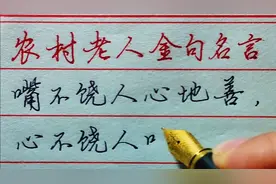 农村老人金句名言
嘴不饶人心地善，
心不饶人